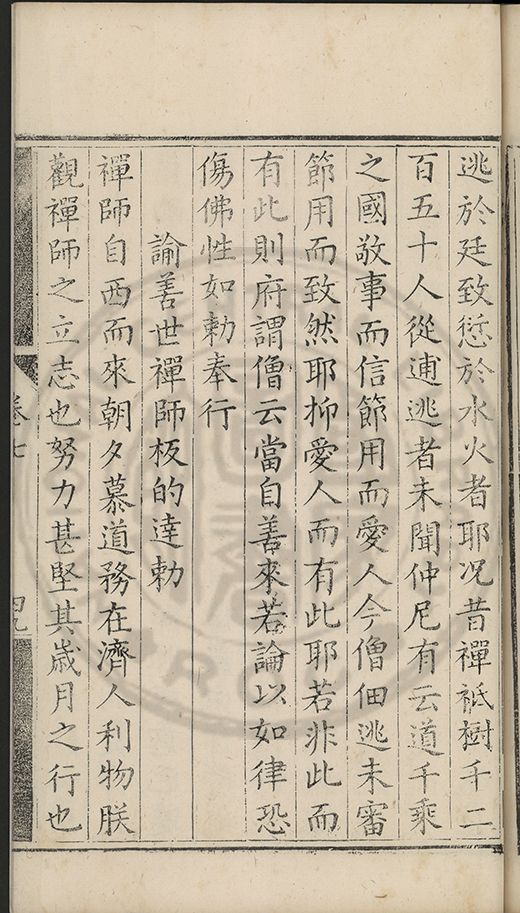 逃於廷致愆於水火者耶况昔禪祇樹千二
百五十人從逋逃者未聞仲尼有云道千乘
之國敬事而信節用而愛人今僧佃逃未審
節用而致然耶抑愛人而有此耶若非此而
有此則府謂僧云當自善來若論以如律恐
傷佛性如勅奉行
諭善世禪師板的達勅
禪師自西而來朝夕慕道務在濟人利物朕
觀禪師之立志也努力甚堅其歲月之行也
卷七
四九